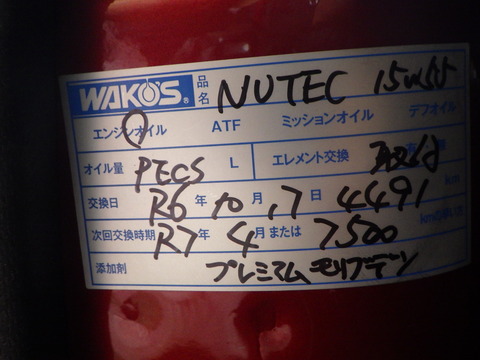 WAKO'S® 品名 NUTEC 15w55
エンジンオイル ATF ミッションオイル デフオイル
オイル量 PECS L エレメント交換
交換日 R6年 10月 17日 4491 km
次回交換時期 R7年 4月または 7500
添加剤 プレミアムモリブデン